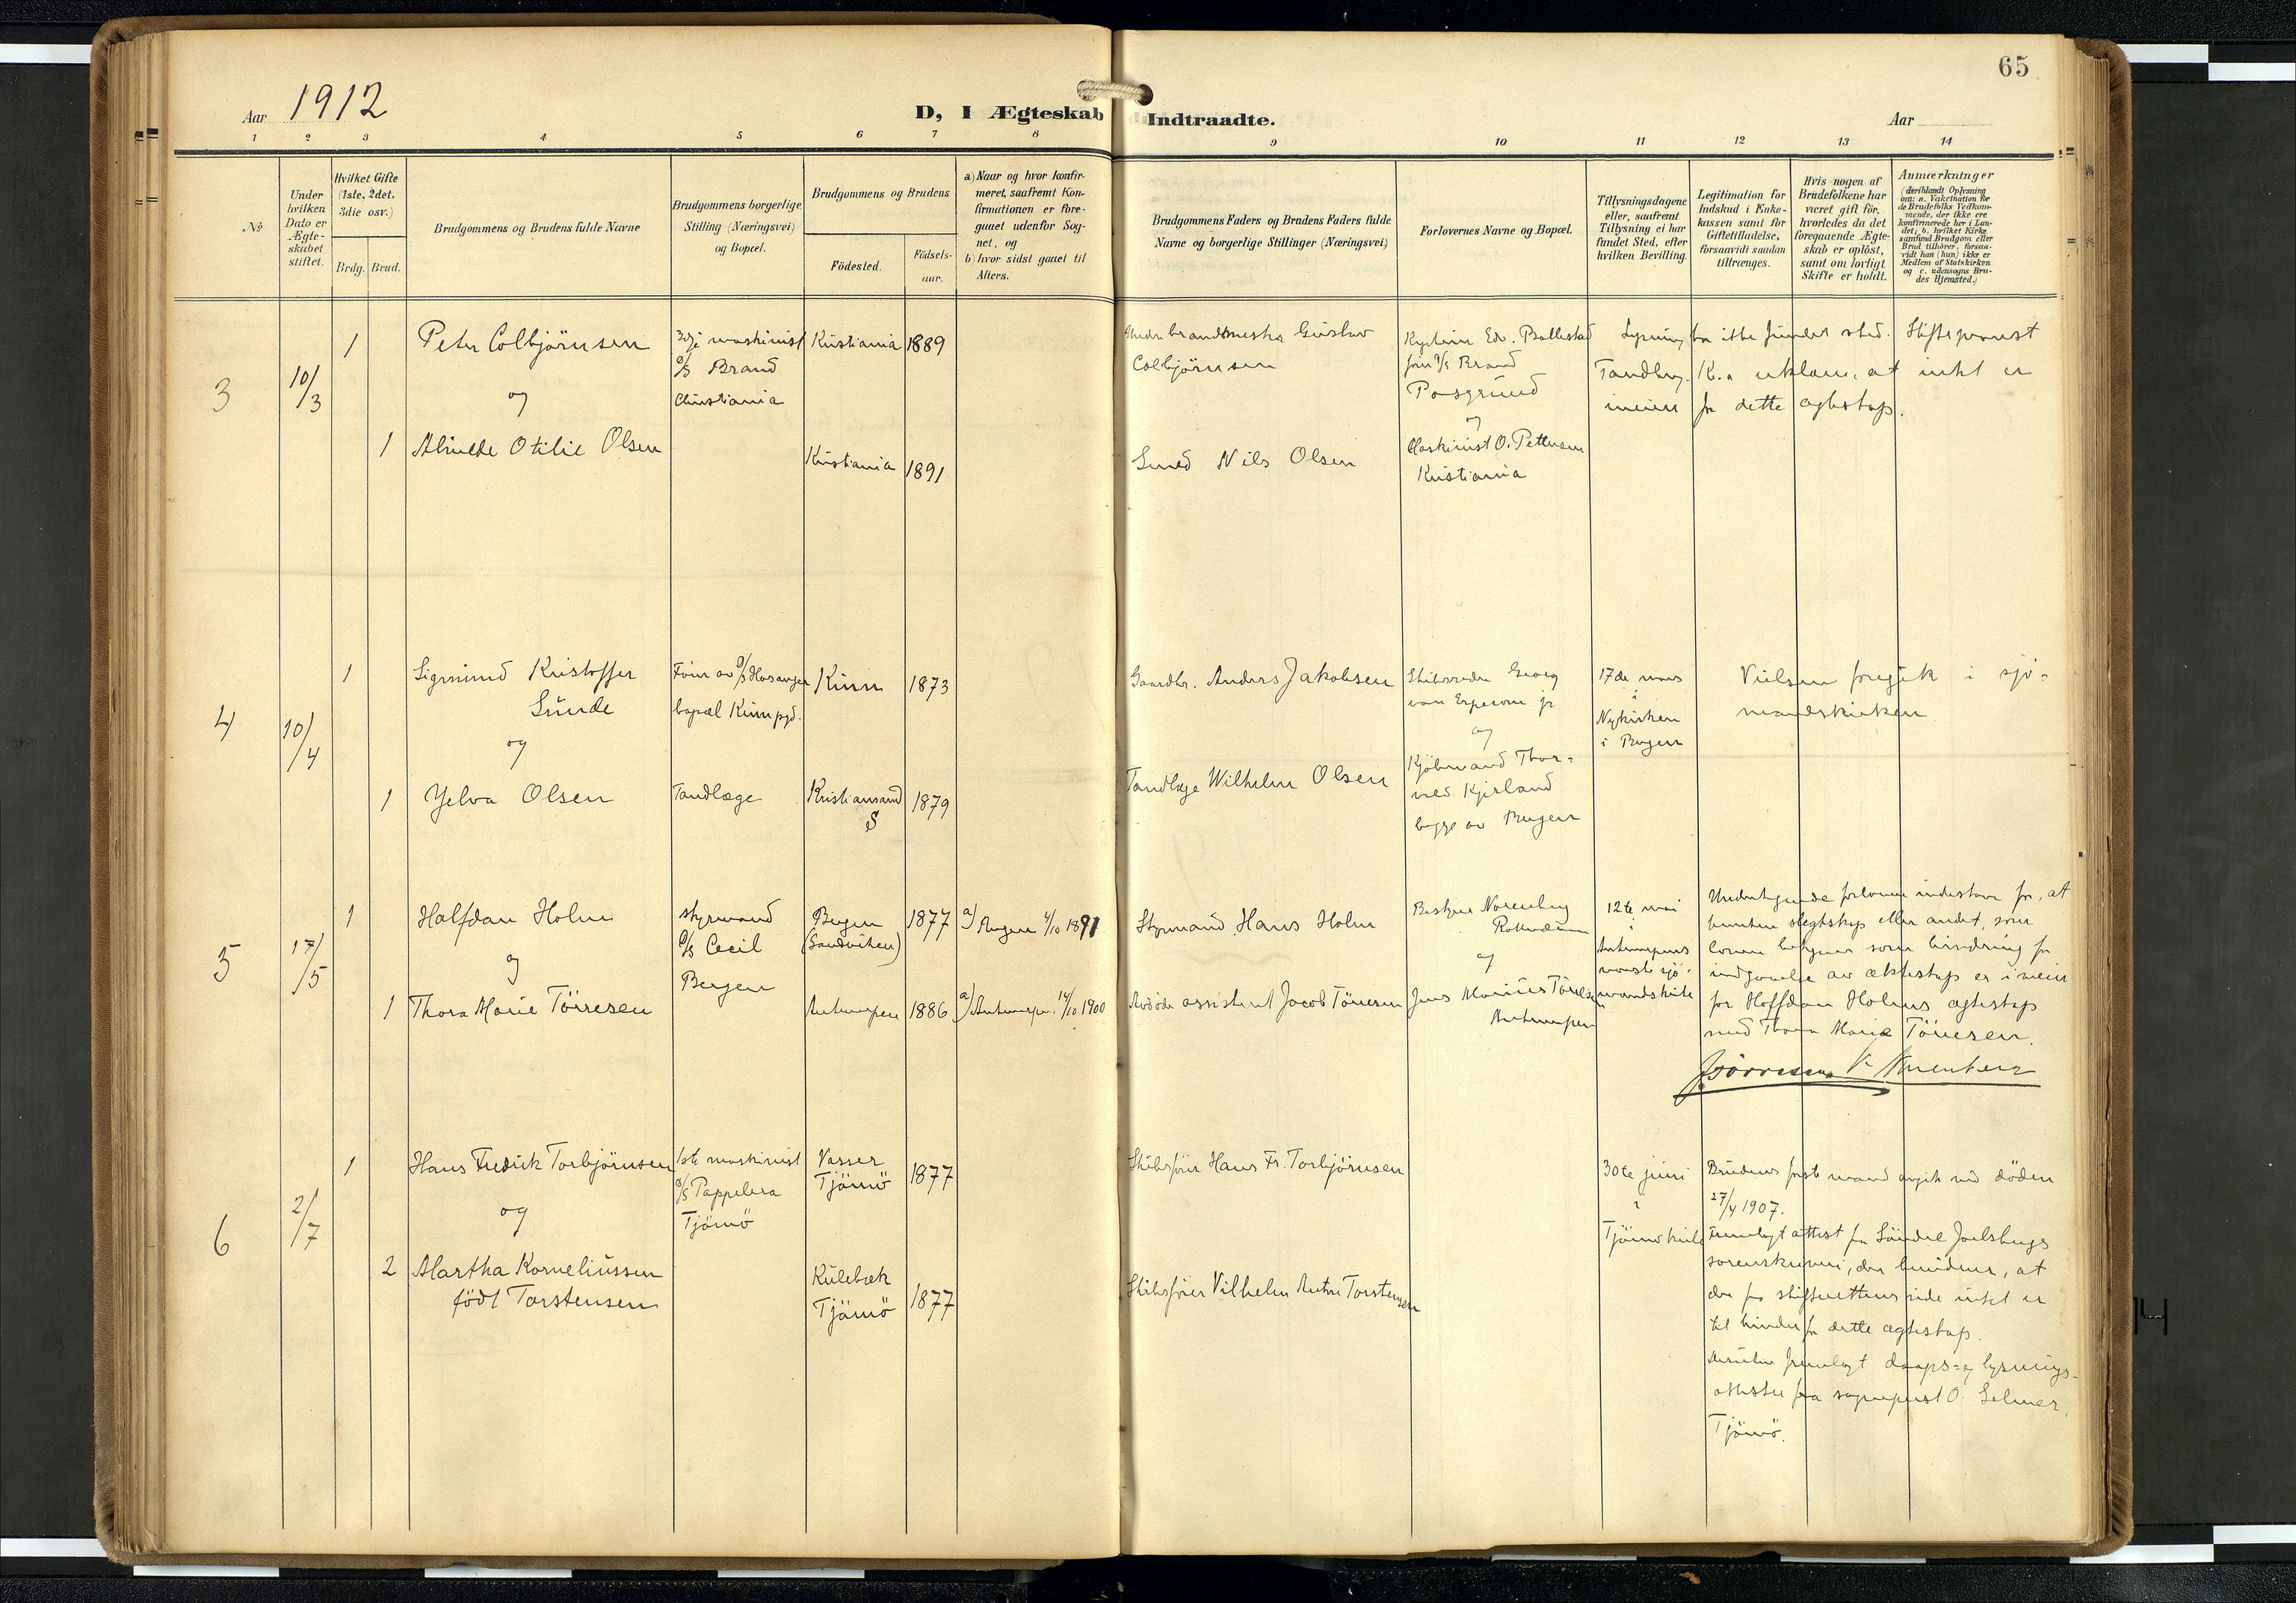 Aar 1912
D, I Ægteskab Indtraadte.
Aar
65
1 2 3 4 5 6 7 8 9 10 11 12 13 14
No
Under
hvilken
Dato er
Ægte-
skabet
stiftet.
Hvilket Gifte
(1ste, 2det,
3die osv.)
Brdg. Brud.
Brudgommens og Brudens fulde Navne
Brudgommens borgerlige
Stilling (Næringsvei)
og Bopæl.
Brudgommens og Brudens
Födested.
Födsels-
aar.
a) Naar og hvor konfir-
meret, saafremt Kon-
firmationen er fore-
gaaet udenfor Sog-
net, og
b) hvor sidst gaaet til
Alters.
Brudgommens Faders og Brudens Faders fulde
Navne og borgerlige Stillinger (Næringsvei)
Forlovernes Navne og Bopæl.
Tillysningsdagene
eller, saafremt
Tillysning ei har
fundet Sted, efter
hvilken Bevilling.
Legitimation for
Indskud i Enke-
kassen samt for
Giftetilladelse,
forsaavidt saadan
tiltrænges.
Hvis nogen af
Brudefolkene har
været gift för,
hvorledes da det
foregaaende Ægte-
skab er oplöst,
samt om lovligt
Skifte er holdt.
Anmærkninger
(deriblandt Oplysning
om: a. Vakcination for
de Brudefolks Vedkom-
mende, der ikke ere
konfirmerede her i Lan-
det; b. hvilket Kirke-
samfund Brudgom eller
Brud tilhörer, forsaa-
vidt han (hun) ikke er
Medlem af Statskirken
og c. udensogns Bru-
des Hjemsted.)
3
10/3
1
Peter Colbjörnsen
og
1 Alvilde Otilie Olsen
3dje maskinist
D/S Brand
Christiania
Kristiania 1889
Kristiania 1891
brandmester Gustav
Colbjörnsen
Smed Nils Olsen
Kaptein Edv. Ballestad
D/S Brand
Porsgrund
og
Maskinist O. Pettersen
Kristiania
Lysning har ikke fundet sted. Stiftsprovst
Tandberg, Kr.a erklærer, at intet er
iveien for dette egteskap.
4
10/4
1
Sigmund Kristoffer
Sunde
og
1 Yelva Olsen
Förer av D/S Hosanger
bopæl Kinn pgd.
Tandlæge
Kinn 1873
Kristiansand
S
1879
Gaardbr. Anders Jakobsen
Tandlæge Wilhelm Olsen
Skibsreder Georg
von Erpecom jr
og
Kjöbmand Thor-
vald Kjerland
begge av Bergen
17de mars
i
Nykirken
i Bergen
Vielsen foregik i sjö-
mandskirken
5
17/5
1
Halfdan Holm
og
1 Thora Marie Törresen
styrmand
D/S Cecil
Bergen
Bergen
(Sandviken)
1877
a) Bergen 4/10 1891
Antwerpen 1886
a) Antwerpen 14/10 1900
Styrmand Hans Holm
Avdöde assistent Jacob Törresen
Bestyrer Norenberg
Rotterdam
og
Jens Marius Törresen
Antwerpen
12te mai
i
Antwerpens
norske sjö-
mandskirke
Undertegnede forlovere indestaar for, at
hverken slegtskap eller andet, som
loven betegner som hindring for
indgaaelse av ekteskap er i veien
for Halfdan Holms egteskap
med Thora Marie Törresen.
6
2/7
1
Hans Fredrik Torbjörnsen
og
2 Martha Korneliussen
födt Torstensen
1ste maskinist
D/S Pappelera
Tjömö
Vasser
Tjömö
1877
Kulebæk
Tjömö
1877
Skibsförer Hans Fr. Torbjörnsen
Skibsförer Vilhelm Anton Torstensen
30te juni
i
Tjömö kirke
Brudens förste mand avgik ved döden
27/4 1907.
Fremlagt attest fra Söndre Jarlsbergs
sorenskriveri, der bevidner, at
der fra skifterettens side intet er
til hinder for dette egteskap.
Desuten fremlagt daaps- og lysnings-
attester fra sogneprest O. Selmer,
Tjömö.